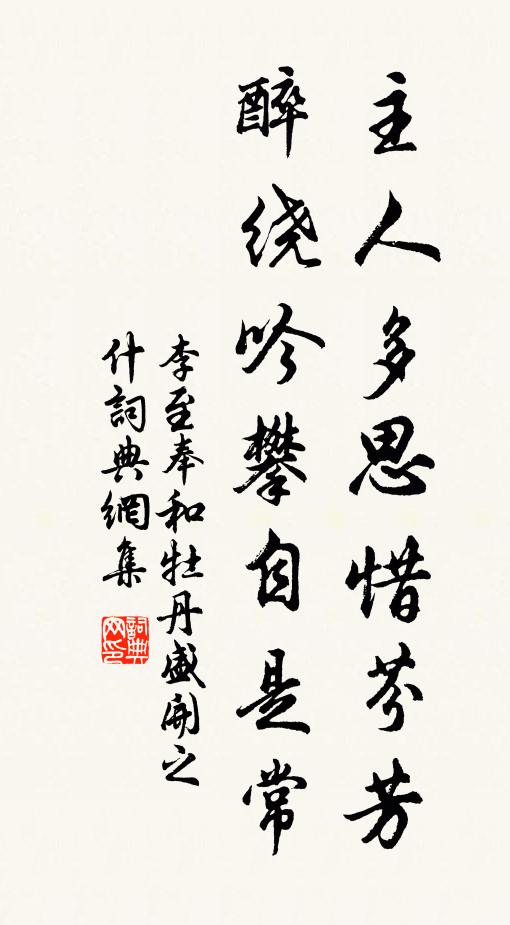 主人多思惜芬芳
醉绕吟攀自是常
李至奉和牡丹盛開之
什詞典網集
詞典网印